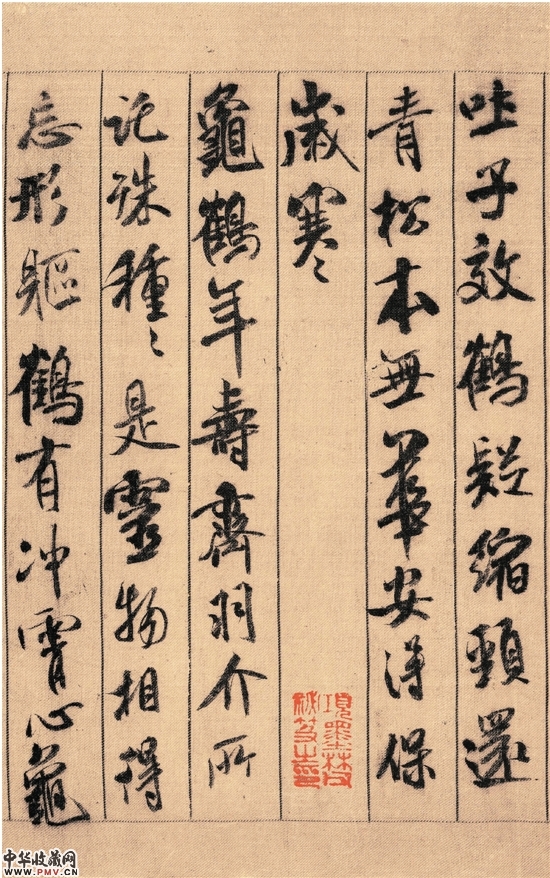 吐子效鶴疑縮頸還
青松本無華安得保
歲寒
龜鶴年壽齊羽介所
託殊種〻是靈物相得
忘形軀鶴有冲霄心龜
項墨林父
祕笈之印
中华收藏网
www.PMV.CN